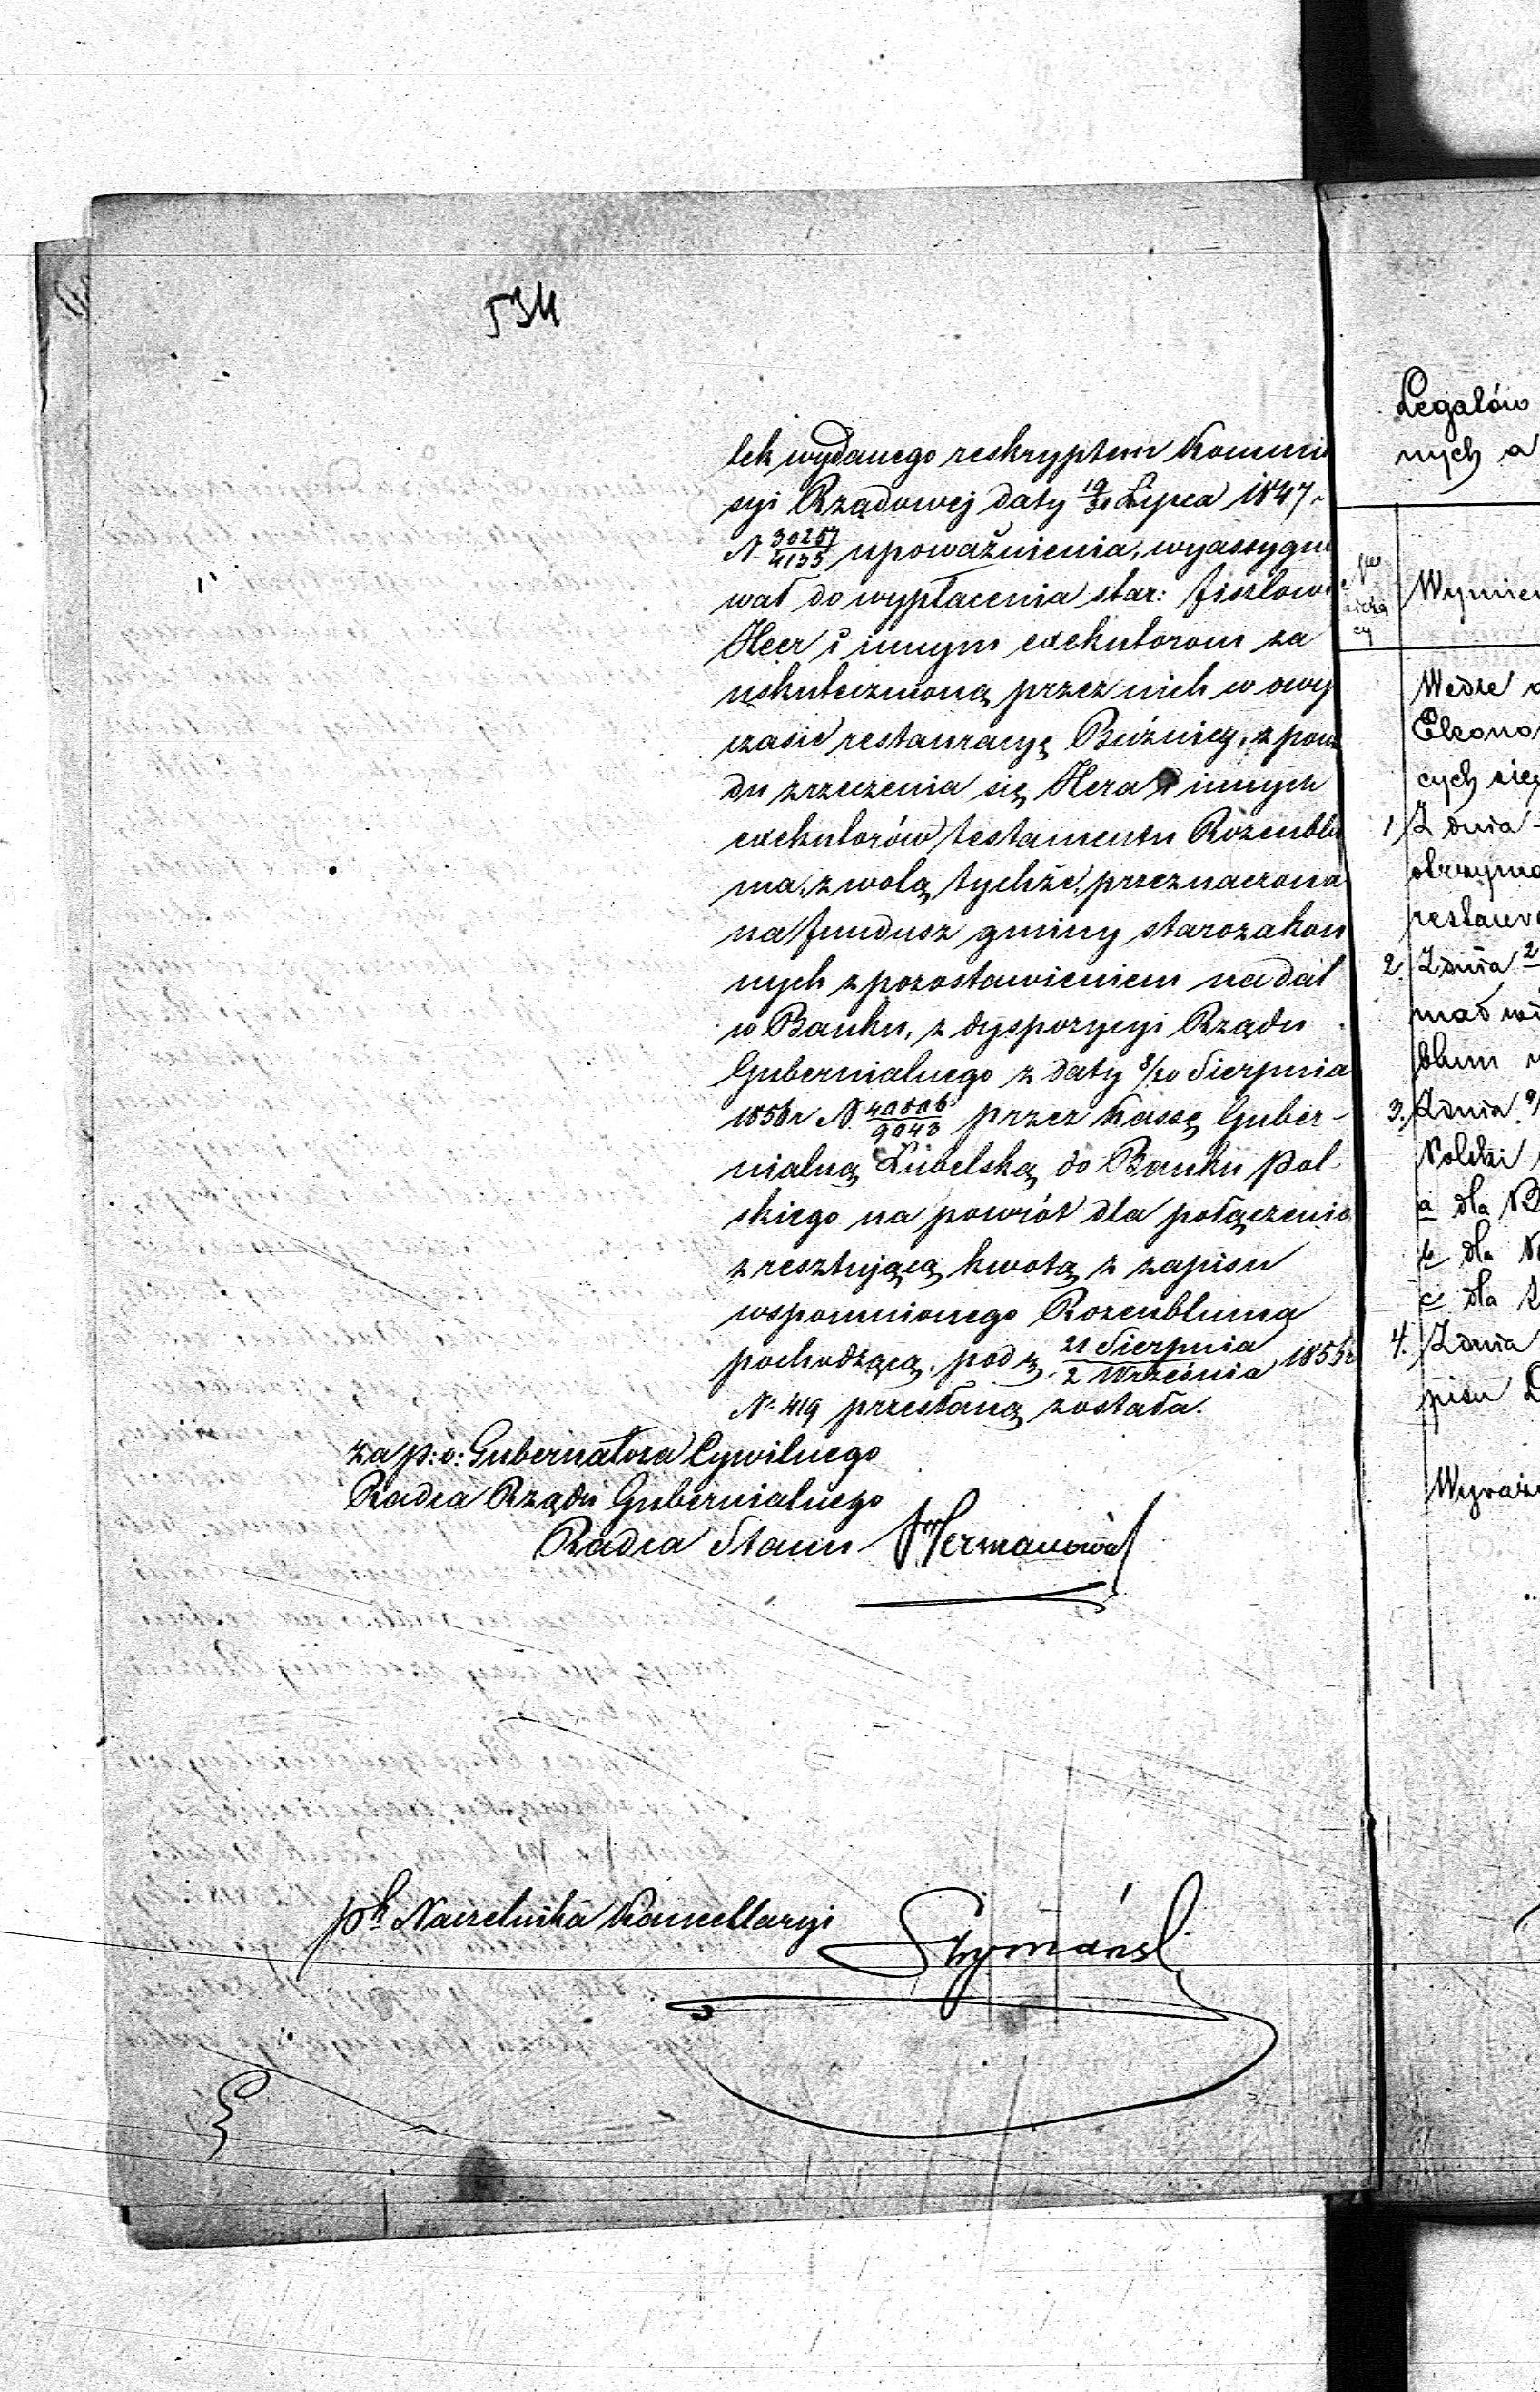 lek wydanego reskryptem Kommi
syi Rządowej daty 19/31 Lipca 1847 r
N. 30257/4135 upoważnienia, wyassygno
wał do wypłacenia star: Fiszlowi
Heer i innym exekutorom za
uskutecznioną przez nich w owym
czasie restauracyę Bóźnicy, z powo
du zrzeczenia się Hera i innych
exekutorów testamentu Rozenblu
ma, z wolą tychże, przeznaczona
na fundusz gminy starozakon
nych z pozostawieniem nadal
w Banku, z dyspozycyi Rządu
Gubernialnego z daty 8/20 Sierpnia
1856 r N. 40806/9043 przez Kassę Guber-
nialną Lubelską do Banku Pol-
skiego na powrót dla połączenia
z resztującą kwotą z zapisu
wspomnionego Rozenbluma
pochodzącą, pod d. 21 Sierpnia/2 Września 1856 r
N. 419 przesłaną została.
za p: o: Gubernatora Cywilnego
Radca Rządu Gubernialnego
Radca Stanu Hermanowicz
Naczelnika Kancellaryi
Legatów
nych a
Wymien
Wedle
Ekono
cych się
1) Z dnia
otrzyma
restaur
2. Z dnia 2
mać
blum
3. Z dnia 9/
Polski
a dla B
b dla
c dla
4. Z dnia
pisu
Wyraż